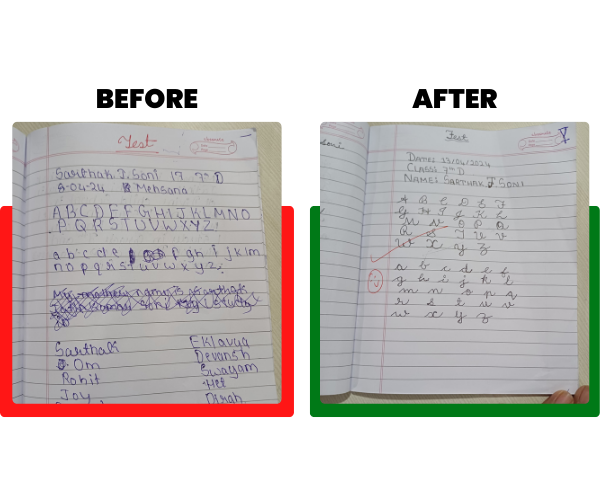 BEFORE
AFTER
Test
Sarthak J. Soni 17 7th D
8-04-24 Mehsana
A B C D E F G H I J K L M N O
P Q R S T U V W X Y Z
a b c d e p g h i j k l m
n o p q r s t u v w x y z.
Sarthak
Om
Rohit
Joy
Eklavya
Devansh
Swayam
Het
Test
DATE: 13/04/2024
CLASS: 7th D
NAME: SARTHAK J. SONI
A B C D E F
G H I J K L
M N O P Q
R S T U V
W X Y Z
a b c d e f
g h i j k l
m n o p q
r s t u v
w x y z